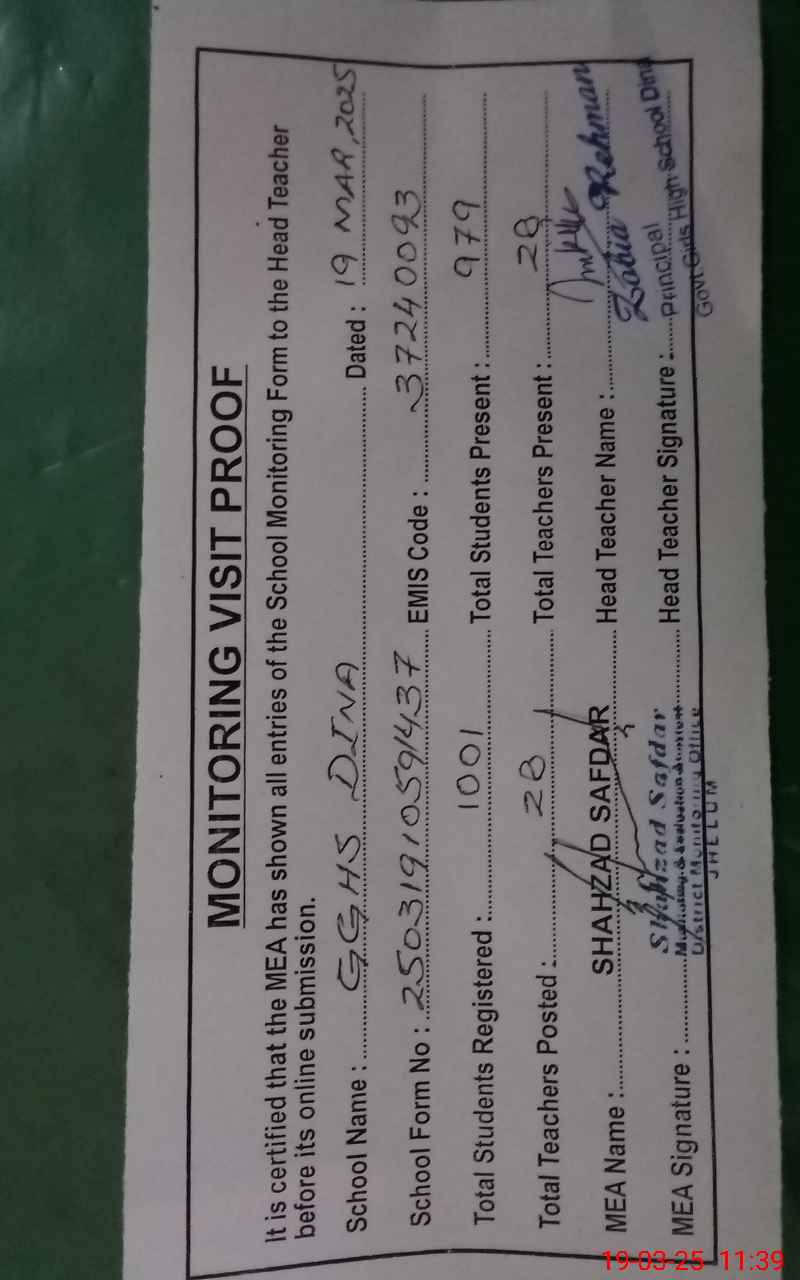 MONITORING VISIT PROOF
It is certified that the MEA has shown all entries of the School Monitoring Form to the Head Teacher
before its online submission.
School Name : GGHS DINA Dated : 19 MAR, 2025
School Form No : 25031910591437 EMIS Code : 37240093
Total Students Registered : 1001 Total Students Present : 979
Total Teachers Posted : 28 Total Teachers Present : 28
MEA Name : SHAHZAD SAFDAR Head Teacher Name : Zahia Rehman
MEA Signature : Shahzad Safdar Head Teacher Signature : Principal
Monitoring & Evaluation Assistant Govt Girls High School Dina
District Monitoring Office
JHELUM
19-03-25 11:39